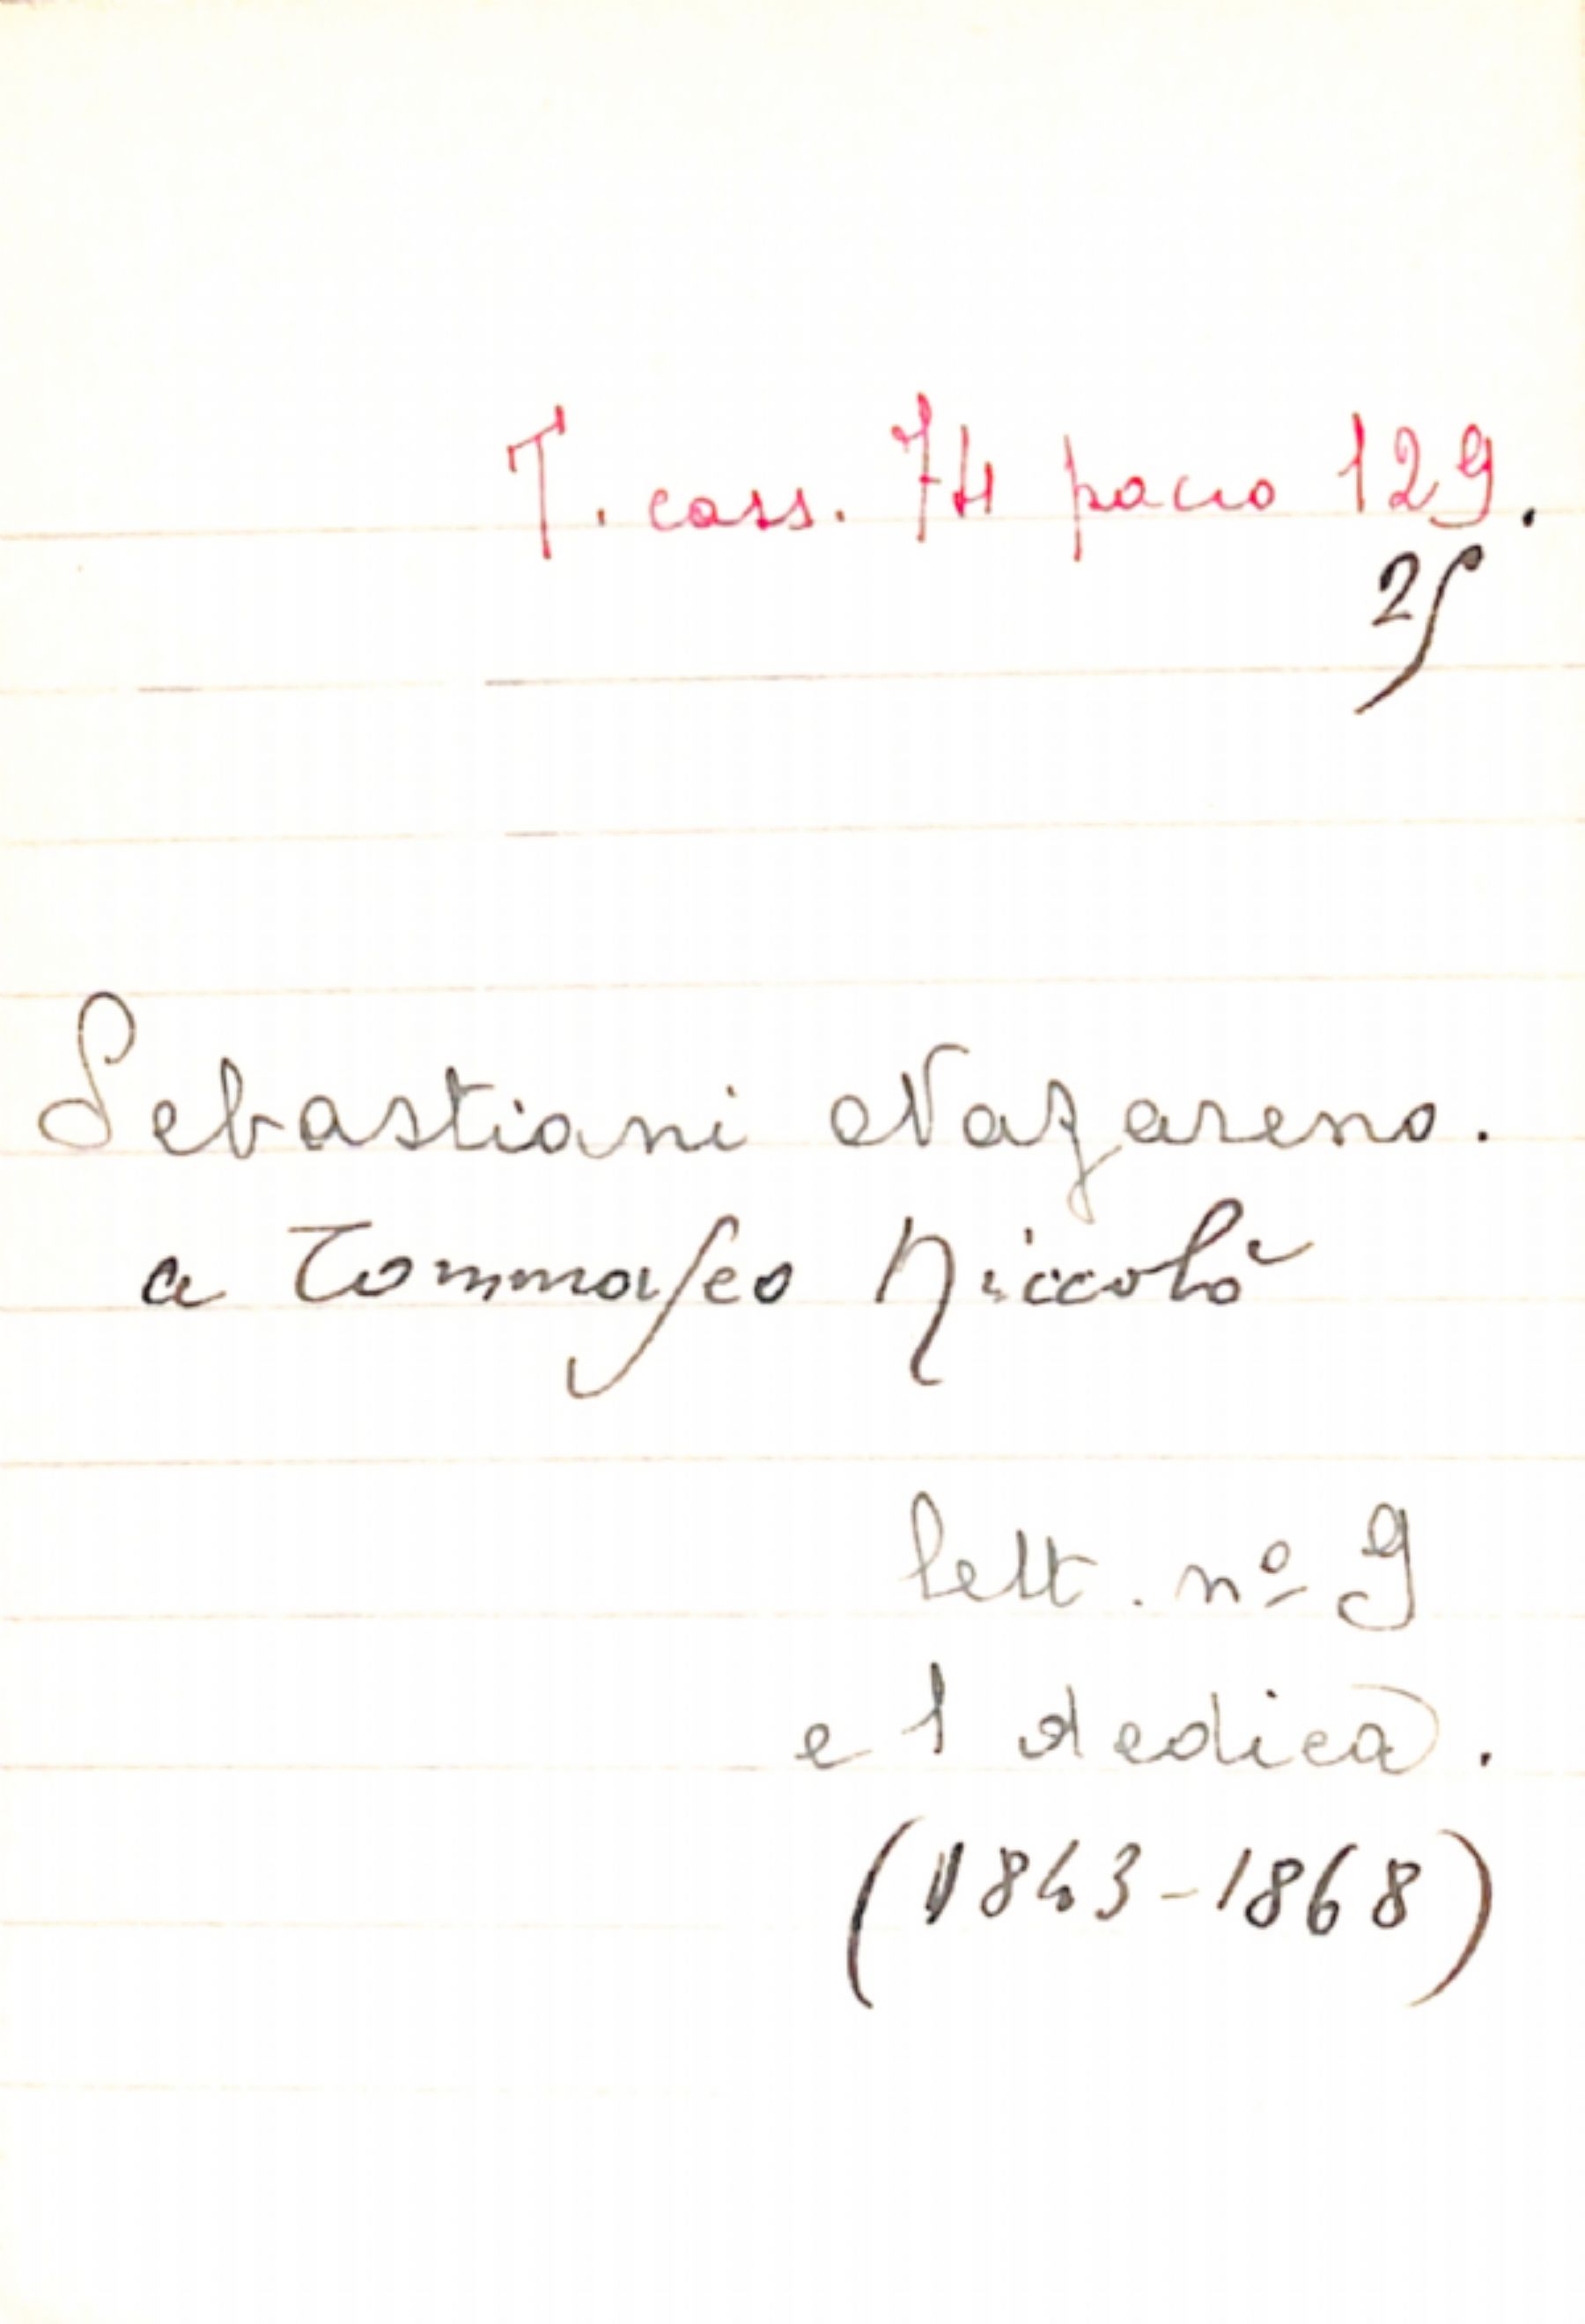 T. cass. 74 pacco 129.
25
Sebastiani Nazareno.
a Tommaseo Niccolò
lett. nº 9
e 1 dedica.
(1843-1868)